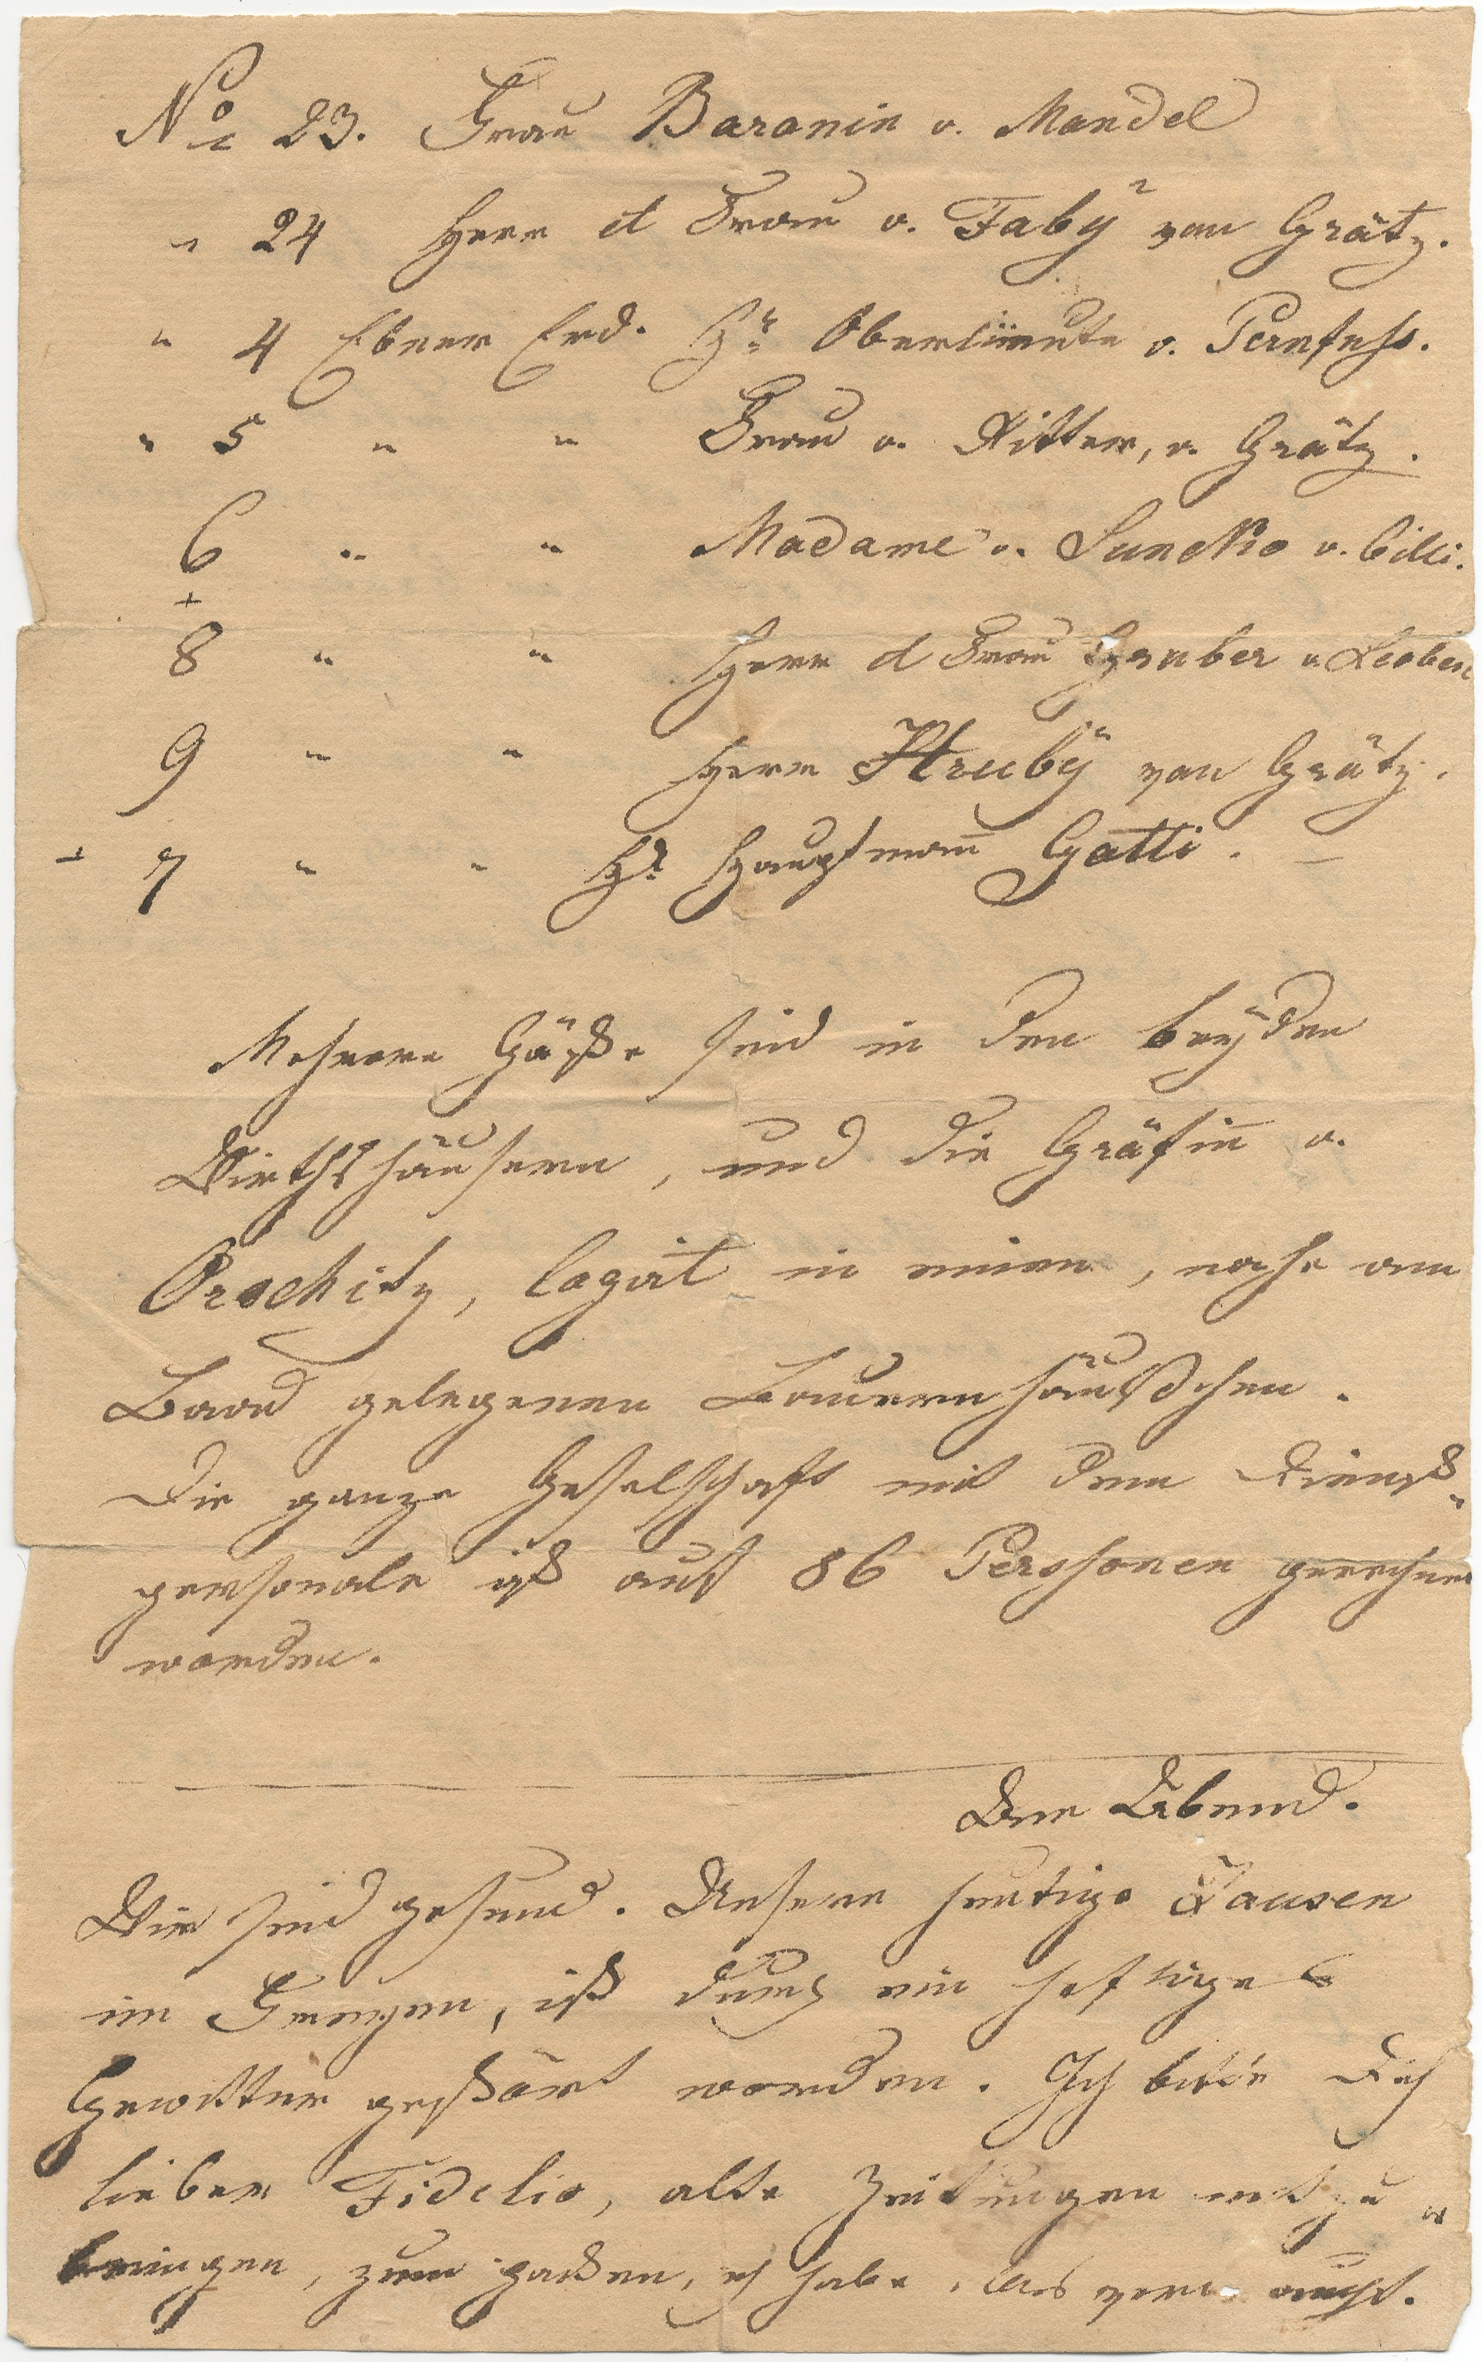 No 23. Frau Baronin v. Mandel
" 24 Herr et Frau v. Faby von Grätz.
" 4 Ebner Erd. Hr. Oberlieute v.
" 5 " " Frau v. Ritter, v. Grätz.
6 " " Madame v. v. Cilli.
+
8 " " Herr et Frau Gruber v Leoben
9 " " Herr Hruby von Grätz.
+ 7 " " Hr. Hauptmann Gatti. –
Mehrere Gäste sind in den beyden
Wirthshäusern, und die Gräfin v.
logirt in einen, nahe am
Baad gelegenen Bauernhäuschen.
Die ganze Geselschaft mit dem Dienst-
personale ist auf 86 Personen gerechnet
worden.
Den Abend.
Wir sind gesund. Unsere heutige Jausen
im Freyen, ist durch ein heftiges
Gewitter gestört worden. Ich bitte Dich
lieber Fidelio, alte Zeitungen mitzu
bringen, zum paken, ich habe alles verbraucht.